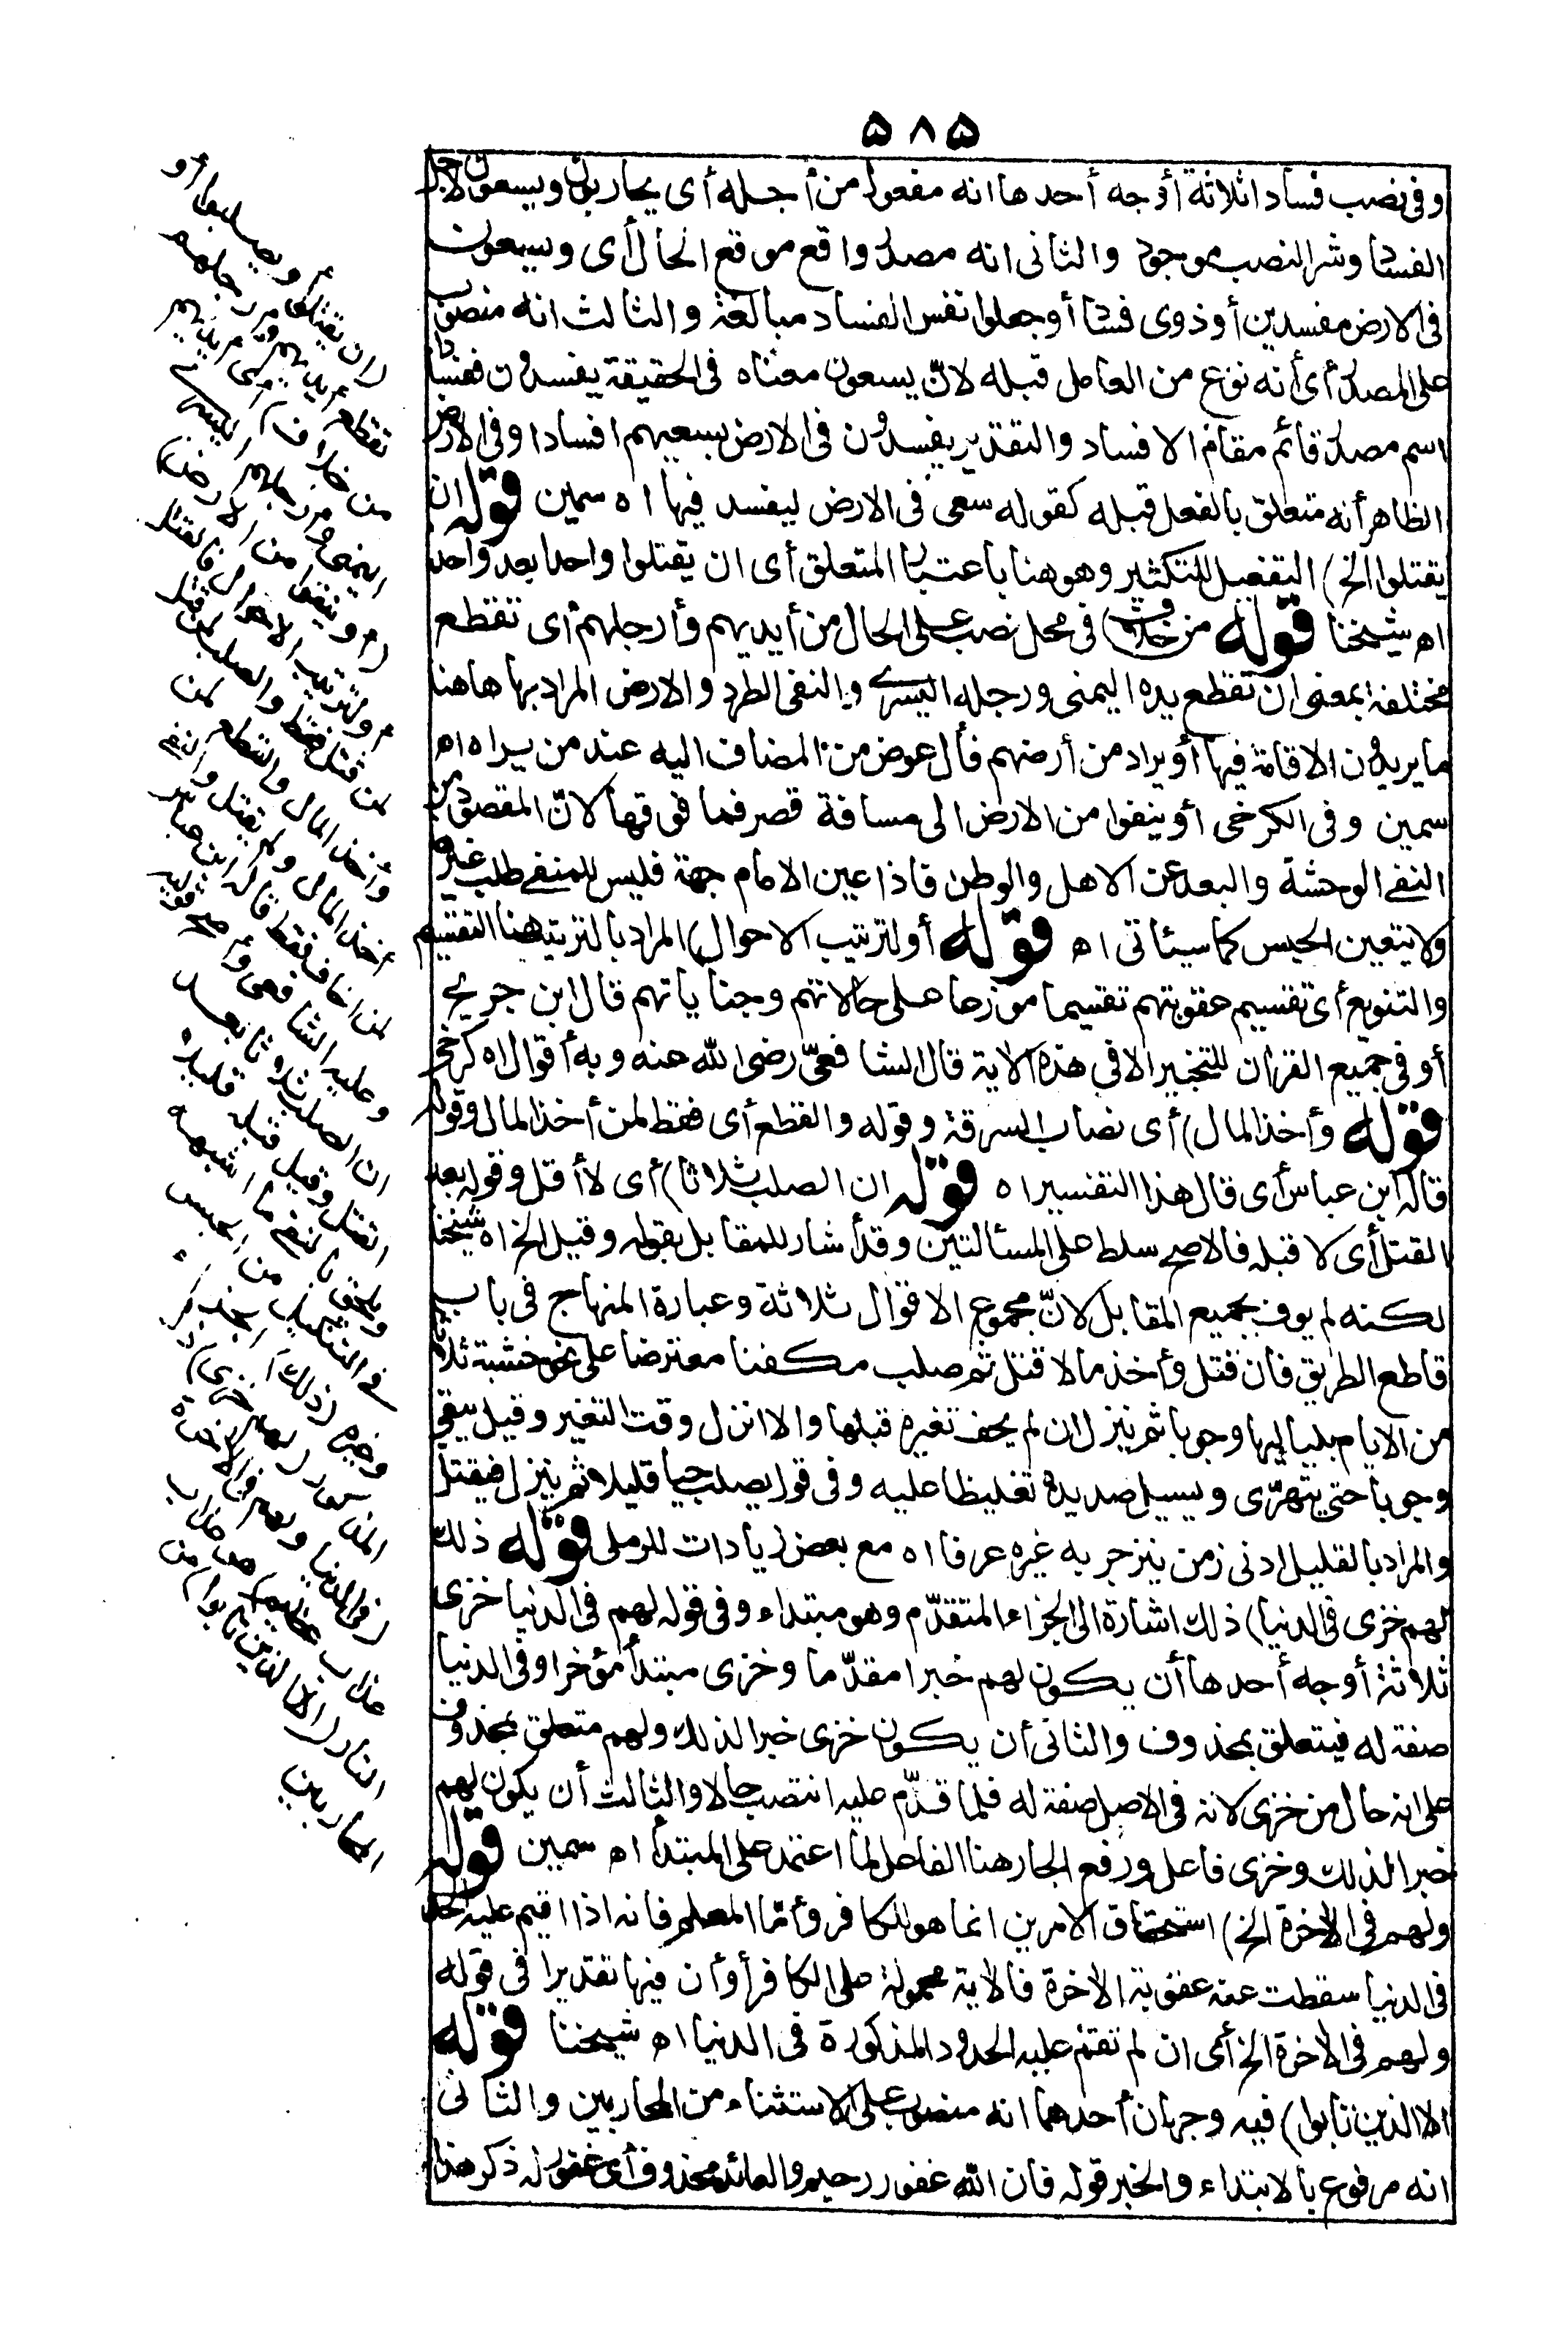 ۵۸۵
وفى نصب فسادا ثلاثة أوجه أحدها انه مفعول من أجله أى يحاربون ويسعون لاجل
الفساد وشرط النصب موجود والثانى انه مصدر واقع موقع الحال أى ويسعون
فى الارض مفسدين أو ذوى فساد أو جعلوا نفس الفساد مبالغة والثالث انه منصوب
على المصدر أى أنه نوع من العامل قبله لانّ يسعون معناه فى الحقيقة يفسدون ففسادا
اسم مصدر قائم مقام الافساد والتقدير يفسدون فى الارض بسعيهم افسادا وفى الارض
الظاهر أنه متعلق بالفعل قبله كقوله سعى فى الارض ليفسد فيها اه سمين قوله ان
يقتلوا الخ) التفعيل للتكثير وهو هنا باعتبار المتعلق أى ان يقتلوا واحدا بعد واحد
اه شيخنا قوله من خلاف) فى محل نصب على الحال من أيديهم وأرجلهم أى تقطع
مختلفة بمعنى ان تقطع يده اليمنى ورجله اليسرى والنفى الطرد والارض المراد بها هاهنا
ما يريدون الاقامة فيها أو يراد من أرضهم فأل عوض من المضاف اليه عند من يراه اه
سمين وفى الكرخى أو ينفوا من الارض الى مسافة قصر فما فوقها لانّ المقصود من
النفى الوحشة والبعد عن الاهل والوطن فاذا عين الامام جهة فليس للمنفى طلب غيرها
ولا يتعين الحبس كما سيأتى اه قوله أو لترتيب الاحوال) المراد بالترتيب هنا التقسيم
والتنويع أى تقسيم عقوبتهم تقسيما موزعا على حالاتهم وجناياتهم قال ابن جريج
أو فى جميع القرآن للتخيير الا فى هذه الآية قال الشافعىّ رضى الله عنه وبه أقوال اه كرخى
قوله وأخذ المال) أى نصاب السرقة وقوله والقطع أى فقط لمن أخذ المال وقوله
قاله ابن عباس أى قال هذا التفسير اه قوله ان الصلب ثلاثا) أى لا أقل وقوله بعد
القتل أى لا قبله فالاصح سلط على المسألتين وقد أشار للمقابل بقوله وقيل الخ اه شيخنا
لكنه لم يوف بجميع المقابل لانّ مجموع الاقوال ثلاثة وعبارة المنهاج فى باب
قاطع الطريق فان قتل وأخذ مالا قتل ثم صلب مكفنا معترضا على نحو خشبة ثلاثة
من الايام بلياليها وجوبا ثم ينزل ان لم يخف تغيره قبلها والا انزل وقت التغير وقيل يبقى
وجوبا حتى يتهرّى ويسيل صديده تغليظا عليه وفى قول يصلب حيا قليلا ثم ينزل فيقتل
والمراد بالقليل ادنى زمن ينزجر به غيره عرفا اه مع بعض زيادات للرملى قوله ذلك
لهم خزى فى الدنيا) ذلك اشارة الى الجزاء المتقدّم وهو مبتداء وفى قوله لهم فى الدنيا خزى
ثلاثة أوجه أحدها أن يكون لهم خبرا مقدّما وخزى مبتدأ مؤخرا وفى الدنيا
صفة له فيتعلق بمحذوف والثانى أن يكون خزى خبرا لذلك ولهم متعلق بمحذوف
على انه حال من خزى لانه فى الاصل صفة له فلما قدّم عليه انتصب حالا والثالث أن يكون لهم
خبرا لذلك وخزى فاعل ورفع الجار هنا الفاعل لما اعتمد على المبتدأ اه سمين قوله
ولهم فى الآخرة الخ) استحقاق الامرين انما هو للكافر وأمّا المسلم فانه اذا اقيم عليه الحد
فى الدنيا سقطت عنه عقوبة الآخرة فالآية محمولة على الكافر أو أن فيها تقديرا فى قوله
ولهم فى الآخرة الخ أى ان لم تقم عليه الحدود المذكورة فى الدنيا اه شيخنا قوله
الا الذين تابوا) فيه وجهان أحدهما انه منصوب على الاستثناء من المحاربين والثانى
انه مرفوع بالابتداء والخبر قوله فان الله غفور رحيم والعائد محذوف أى غفور له ذكر هذا
(ان يقتلوا أو يصلبوا أو
تقطع أيديهم وأرجلهم
من خلاف) أى أيديهم
اليمنى وأرجلهم اليسرى
(أو ينفوا من الارض)
أو لترتيب الاحوال فالقتل
لمن قتل فقط والصلب لمن قتل
وأخذ المال والقطع لمن
أخذ المال ولم يقتل والنفى
لمن اخاف فقط قاله ابن عباس
وعليه الشافعى وأصح قوليه
ان الصلب ثلاثا بعد
القتل وقيل قبله قليلا
ويلحق بالنفى ما أشبهه
فى التنكيل من الحبس
وغيره (ذلك) الجزاء
المذكور (لهم خزى)
(فى الدنيا ولهم فى الآخرة
عذاب عظيم) هو عذاب
النار (الا الذين تابوا) من
المحاربين